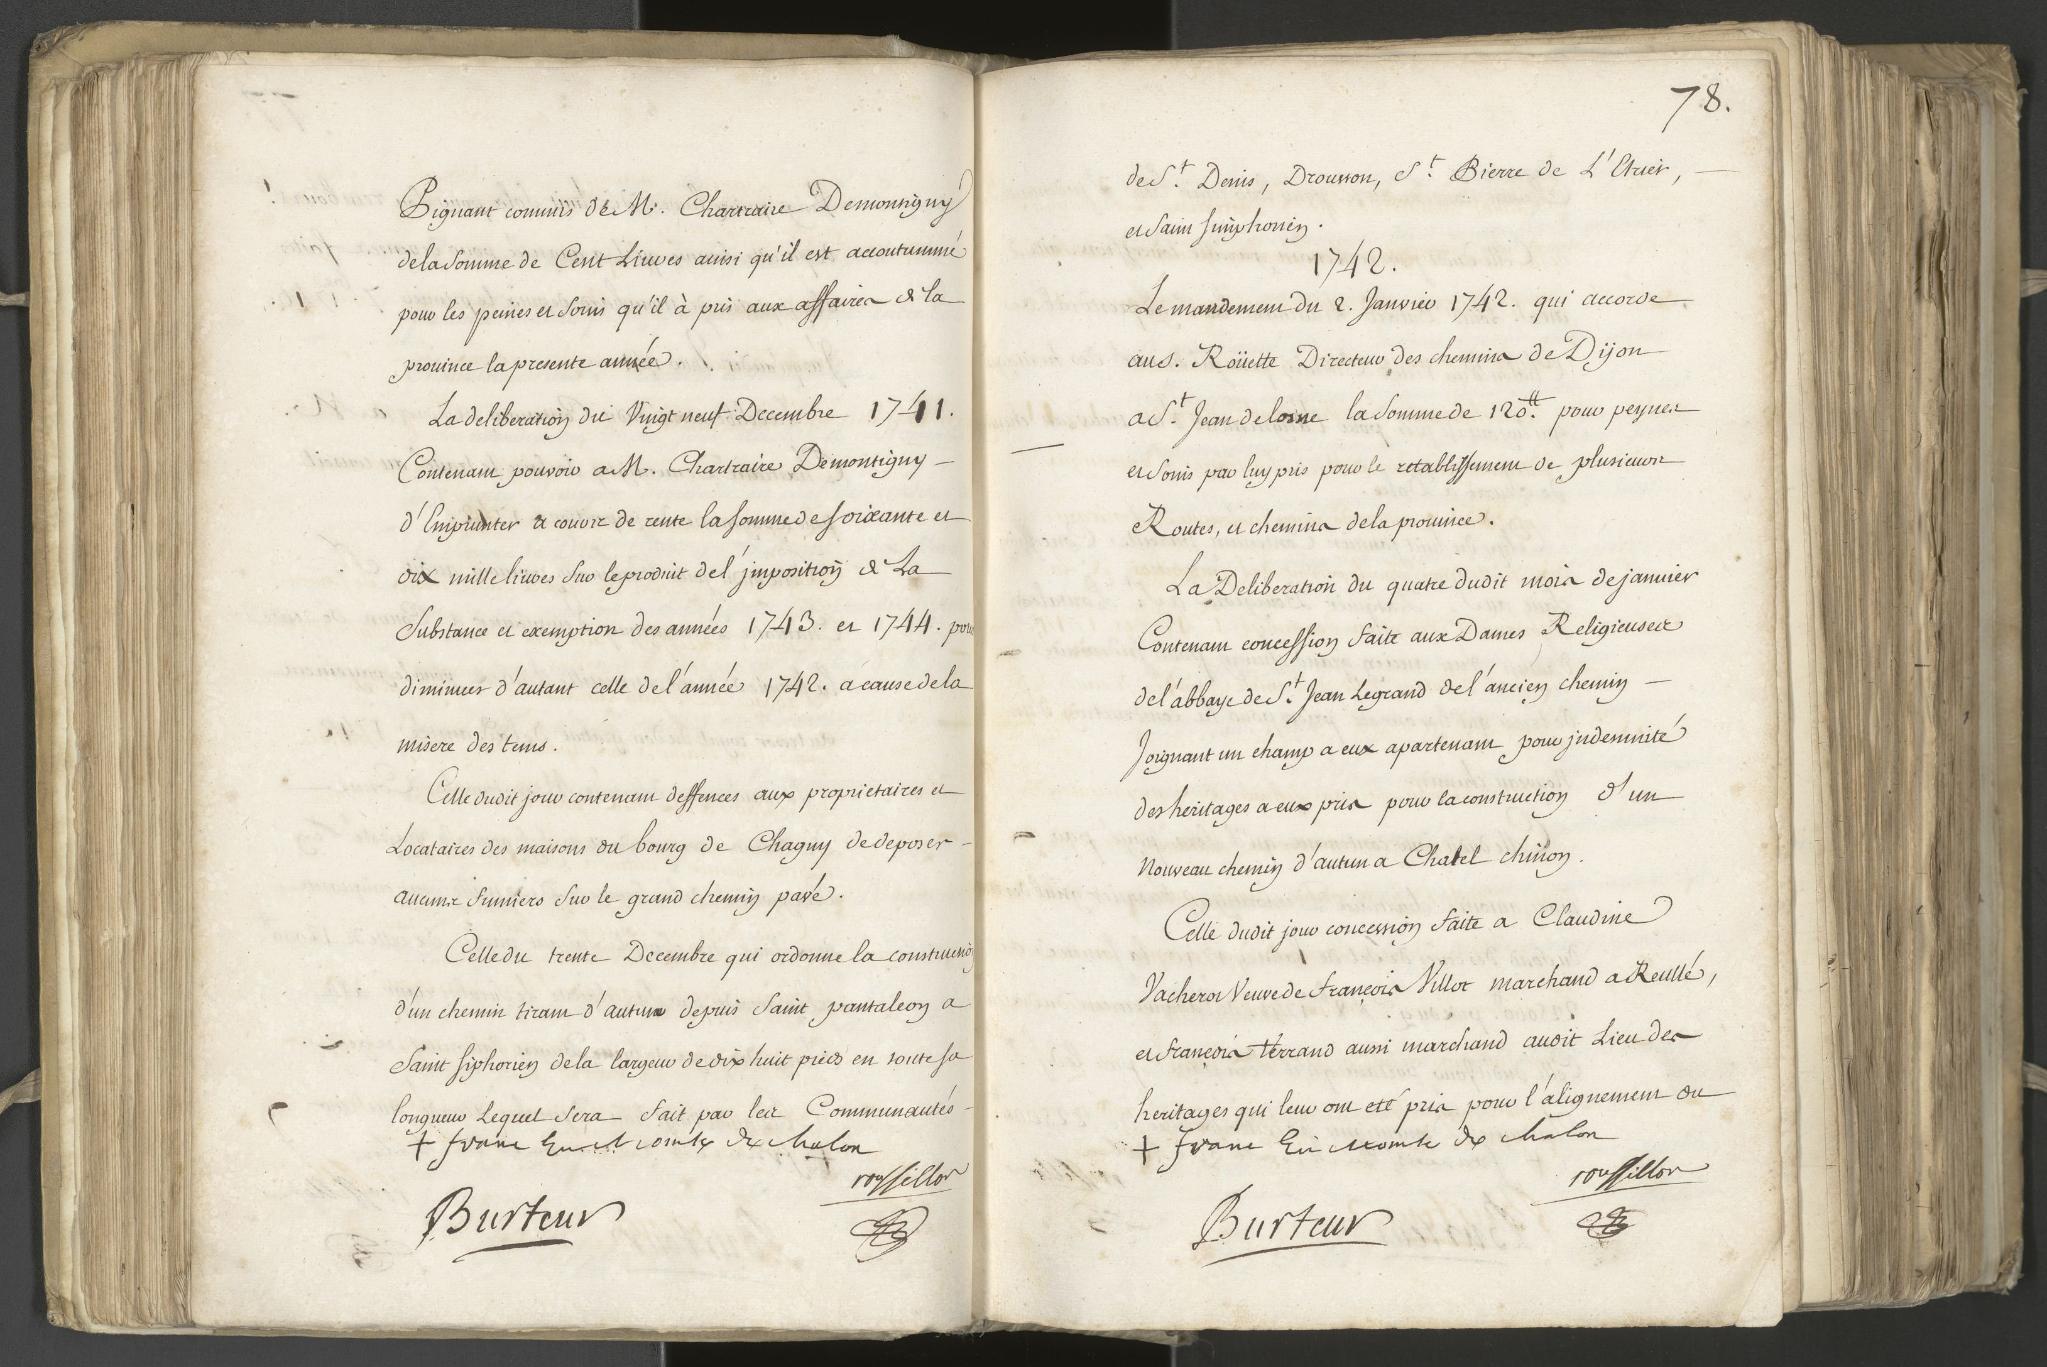 Pignant commis de M. Chartraire Demontigny
de la Somme de Cent Liuves ainsi qu'il est accoutummé
pour les peines et soins qu'il à pris aux affaires de la
prouince la presente année.
La deliberation du Vingt neuf Decembre 1741.
Contenant pouvoir a M. Chartraire Demontigny —
d'Emprunter a cour de rente la somme de soixante et
dix mille liures sur le produit de l'jmposition de La
Substance et exemption des années 1743. et 1744. pour
diminuer d'autant celle de l'année 1742. a cause de la
misere des tems.
Celle dudit jour contenant deffences aux proprietaires et
Locataires des maisons du bourg de Chagny de deposer —
aucuns fumiers sur le grand chemin pavé.
Celle du trente Decembre qui ordonne la construction
d'un chemin tirant d'autun depuis Saint pantaleon a
Saint siphorien de la largeur de dix huit pieds en toute sa
longueur Lequel sera fait par les Communautés —
+ comte de chalon
roussillon
Burteur
78.
de St. Denis, Drousson, St. Pierre de L'Etrier, —
et Saint simphorien.
1742.
Le mandement du 2. Janvier 1742. qui accorde
au S. Roüette Directeur des chemins de Dijon
a St. Jean delosne la Somme de 120.tt pour peynes
et soins par luy pris pour le retablissement de plusieurs
Routes, et chemins de la prouince.
La Deliberation du quatre dudit mois de januier
Contenant concession faite aux Dames Religieuses
de l'abbaye de St. Jean Legrand de l'ancien chemin —
Joignant un champ a eux apartenant pour jndemnité
des heritages a eux pris pour la construction d'un
Nouveau chemin d'autun a Chatel chinon.
Celle dudit jour concession faite a Claudine
Vacherot Veuve de François Villot marchand a Reullé,
et François terrand aussi marchand audit Lieu des
heritages qui leur ont eté pris pour l'alignement du
+ comte de chalon
roussillon
Burteur